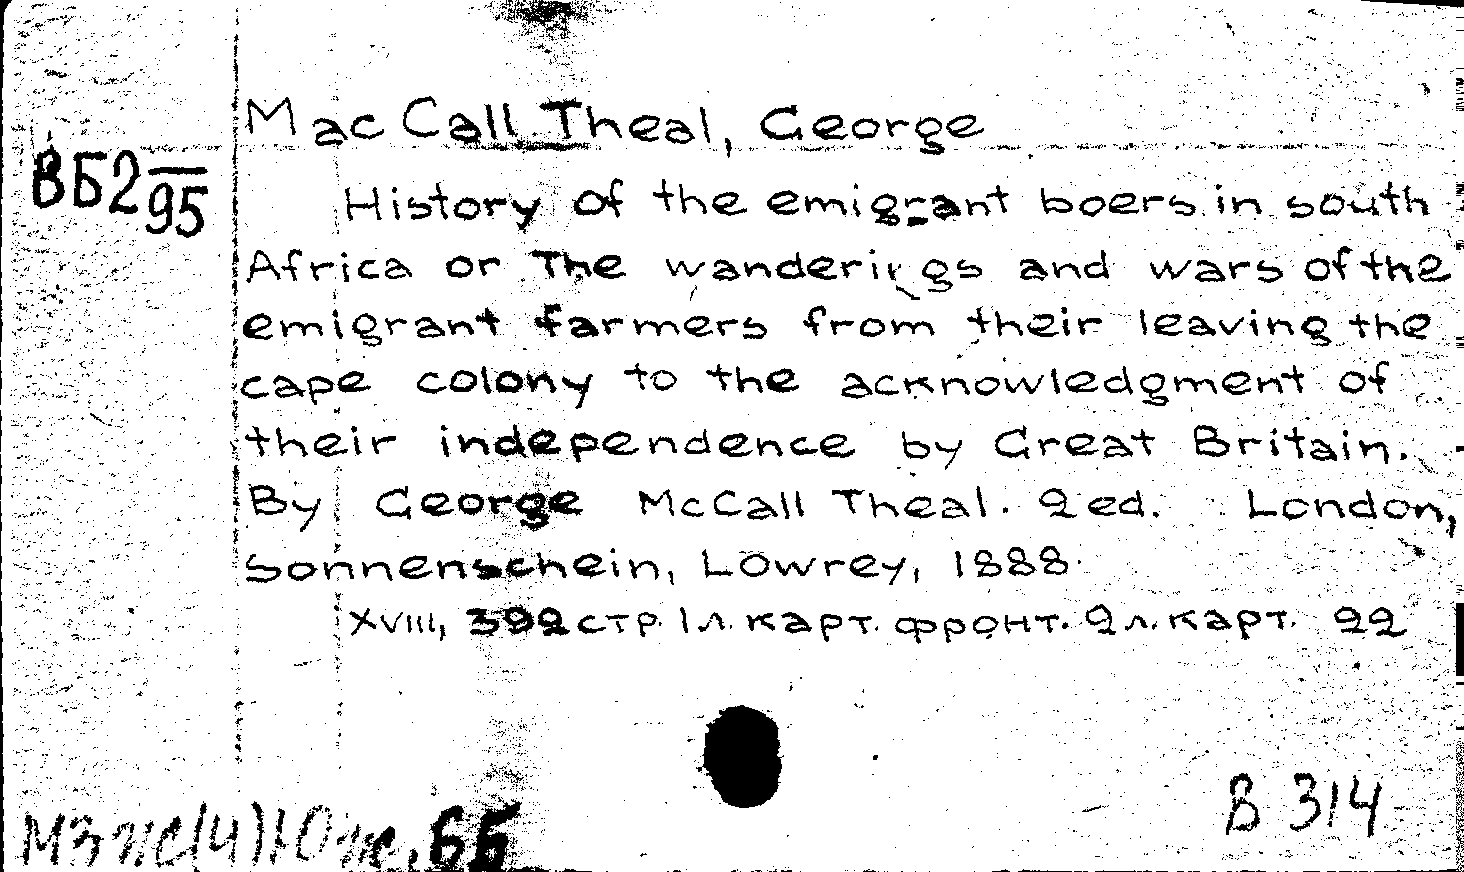 Mac Call Theal, George
ВБ2 95
History of the emigrant boers in south
Africa or The wanderings and wars of the
emigrant farmers from their leaving the
cape colony to the acknowledgment of
their independence by Great Britain.
By George McCall Theal. 2 ed. London,
Sonnenschein, Lowrey, 1888.
XVIII, 392 стр. 1 л. карт. фронт. 2 л. карт. 22
В 314